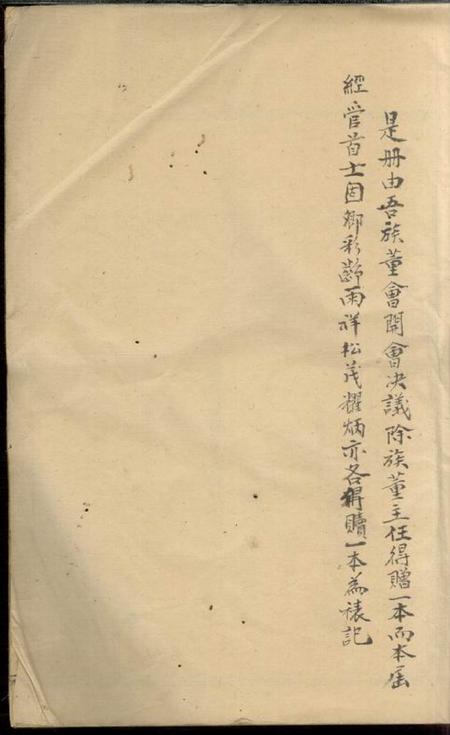 是册由吾族董會開會决議除族董主任得贈一本而本届
經管首士国卿彩齡雨祥松茂耀炳亦各得贈一本為裱記